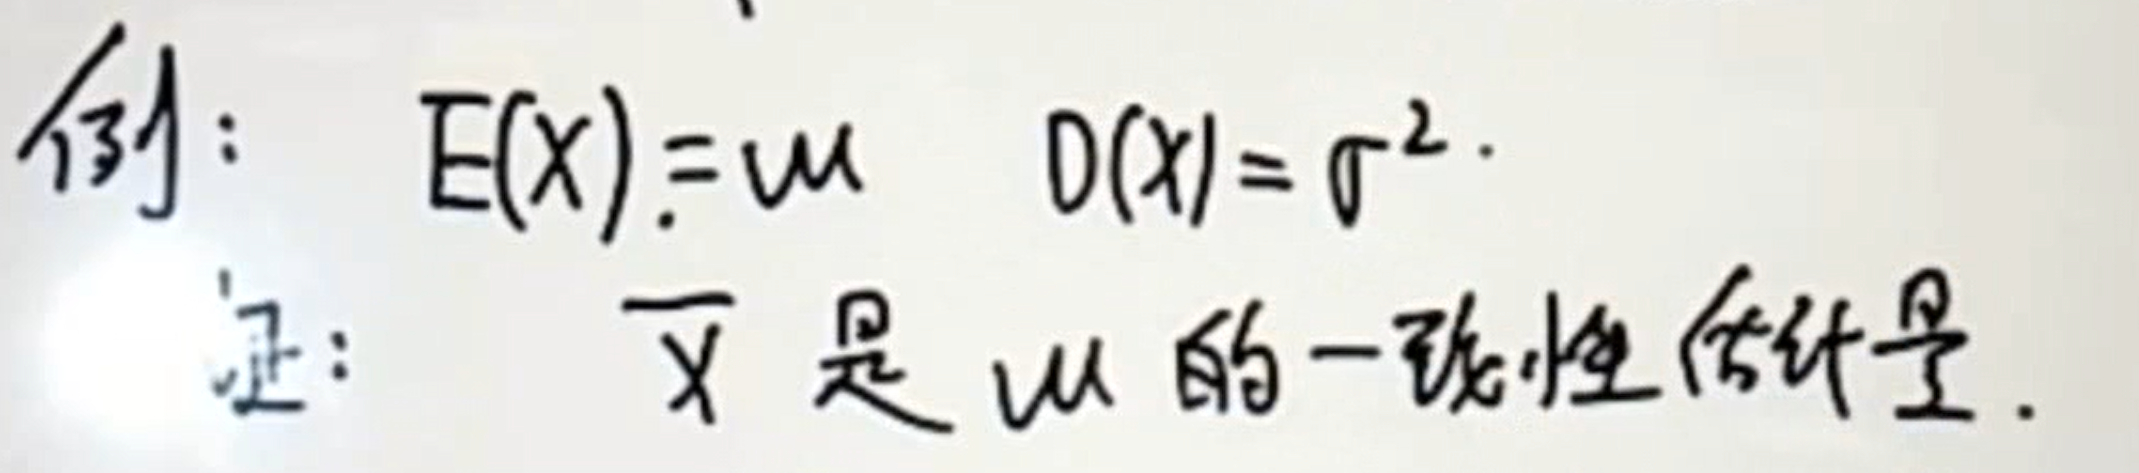 例: E(X)=μ D(X)=σ².
证: X̄ 是 μ 的一致性估计量.